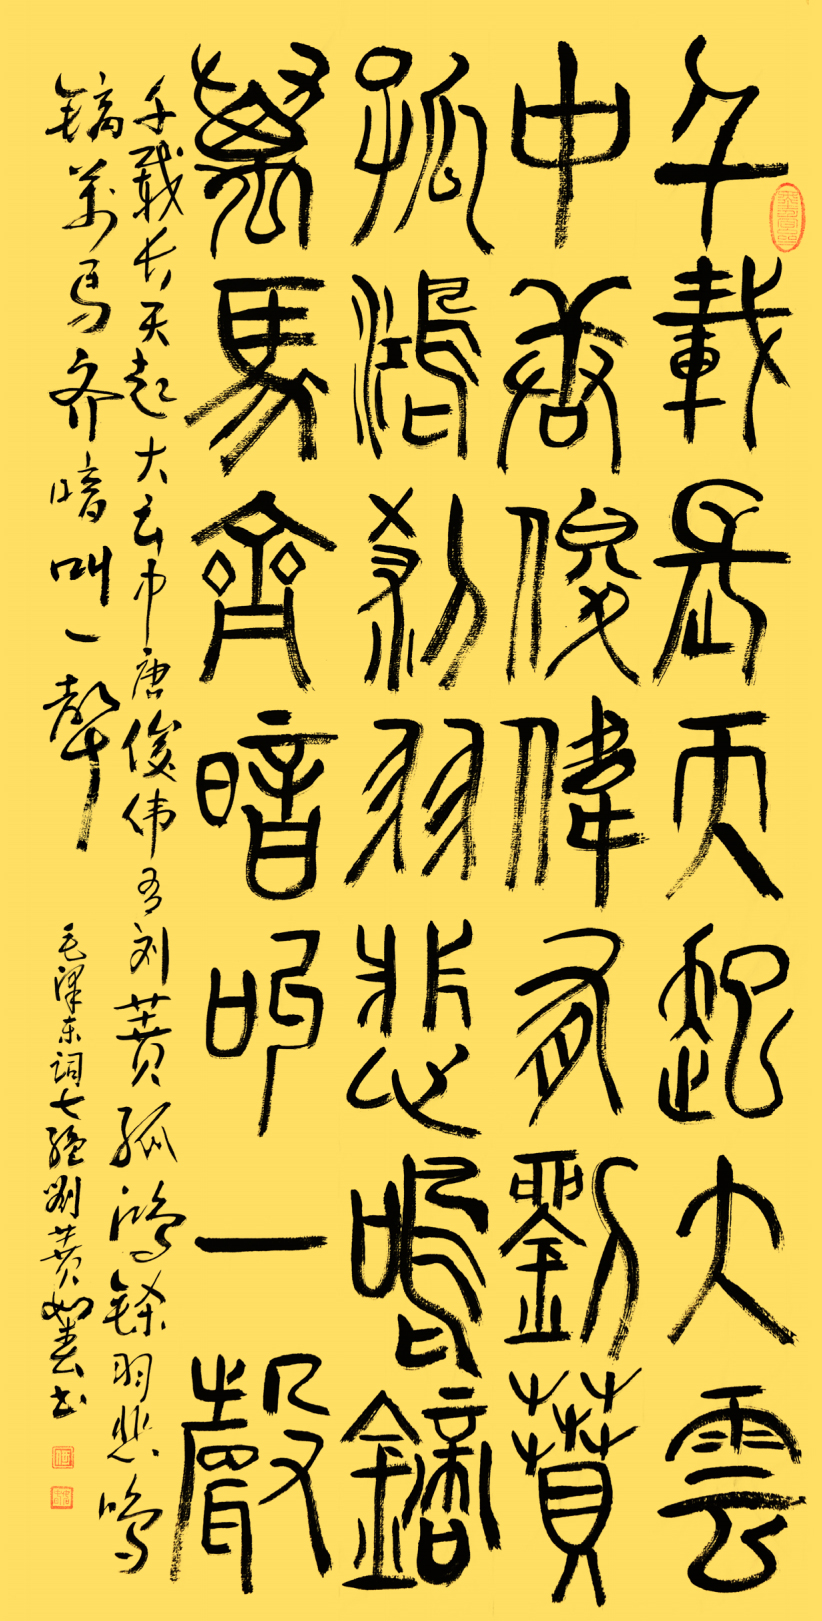 千載長天起大雲
中唐俊偉有劉蕡
孤鴻鎩羽悲鳴鏑
萬馬齊喑叫一聲
千载长天起大云中唐俊伟有刘蕡孤鸿铩羽悲鸣
镝萬马齐喑叫一聲
毛泽东词七绝劉蕡如春书